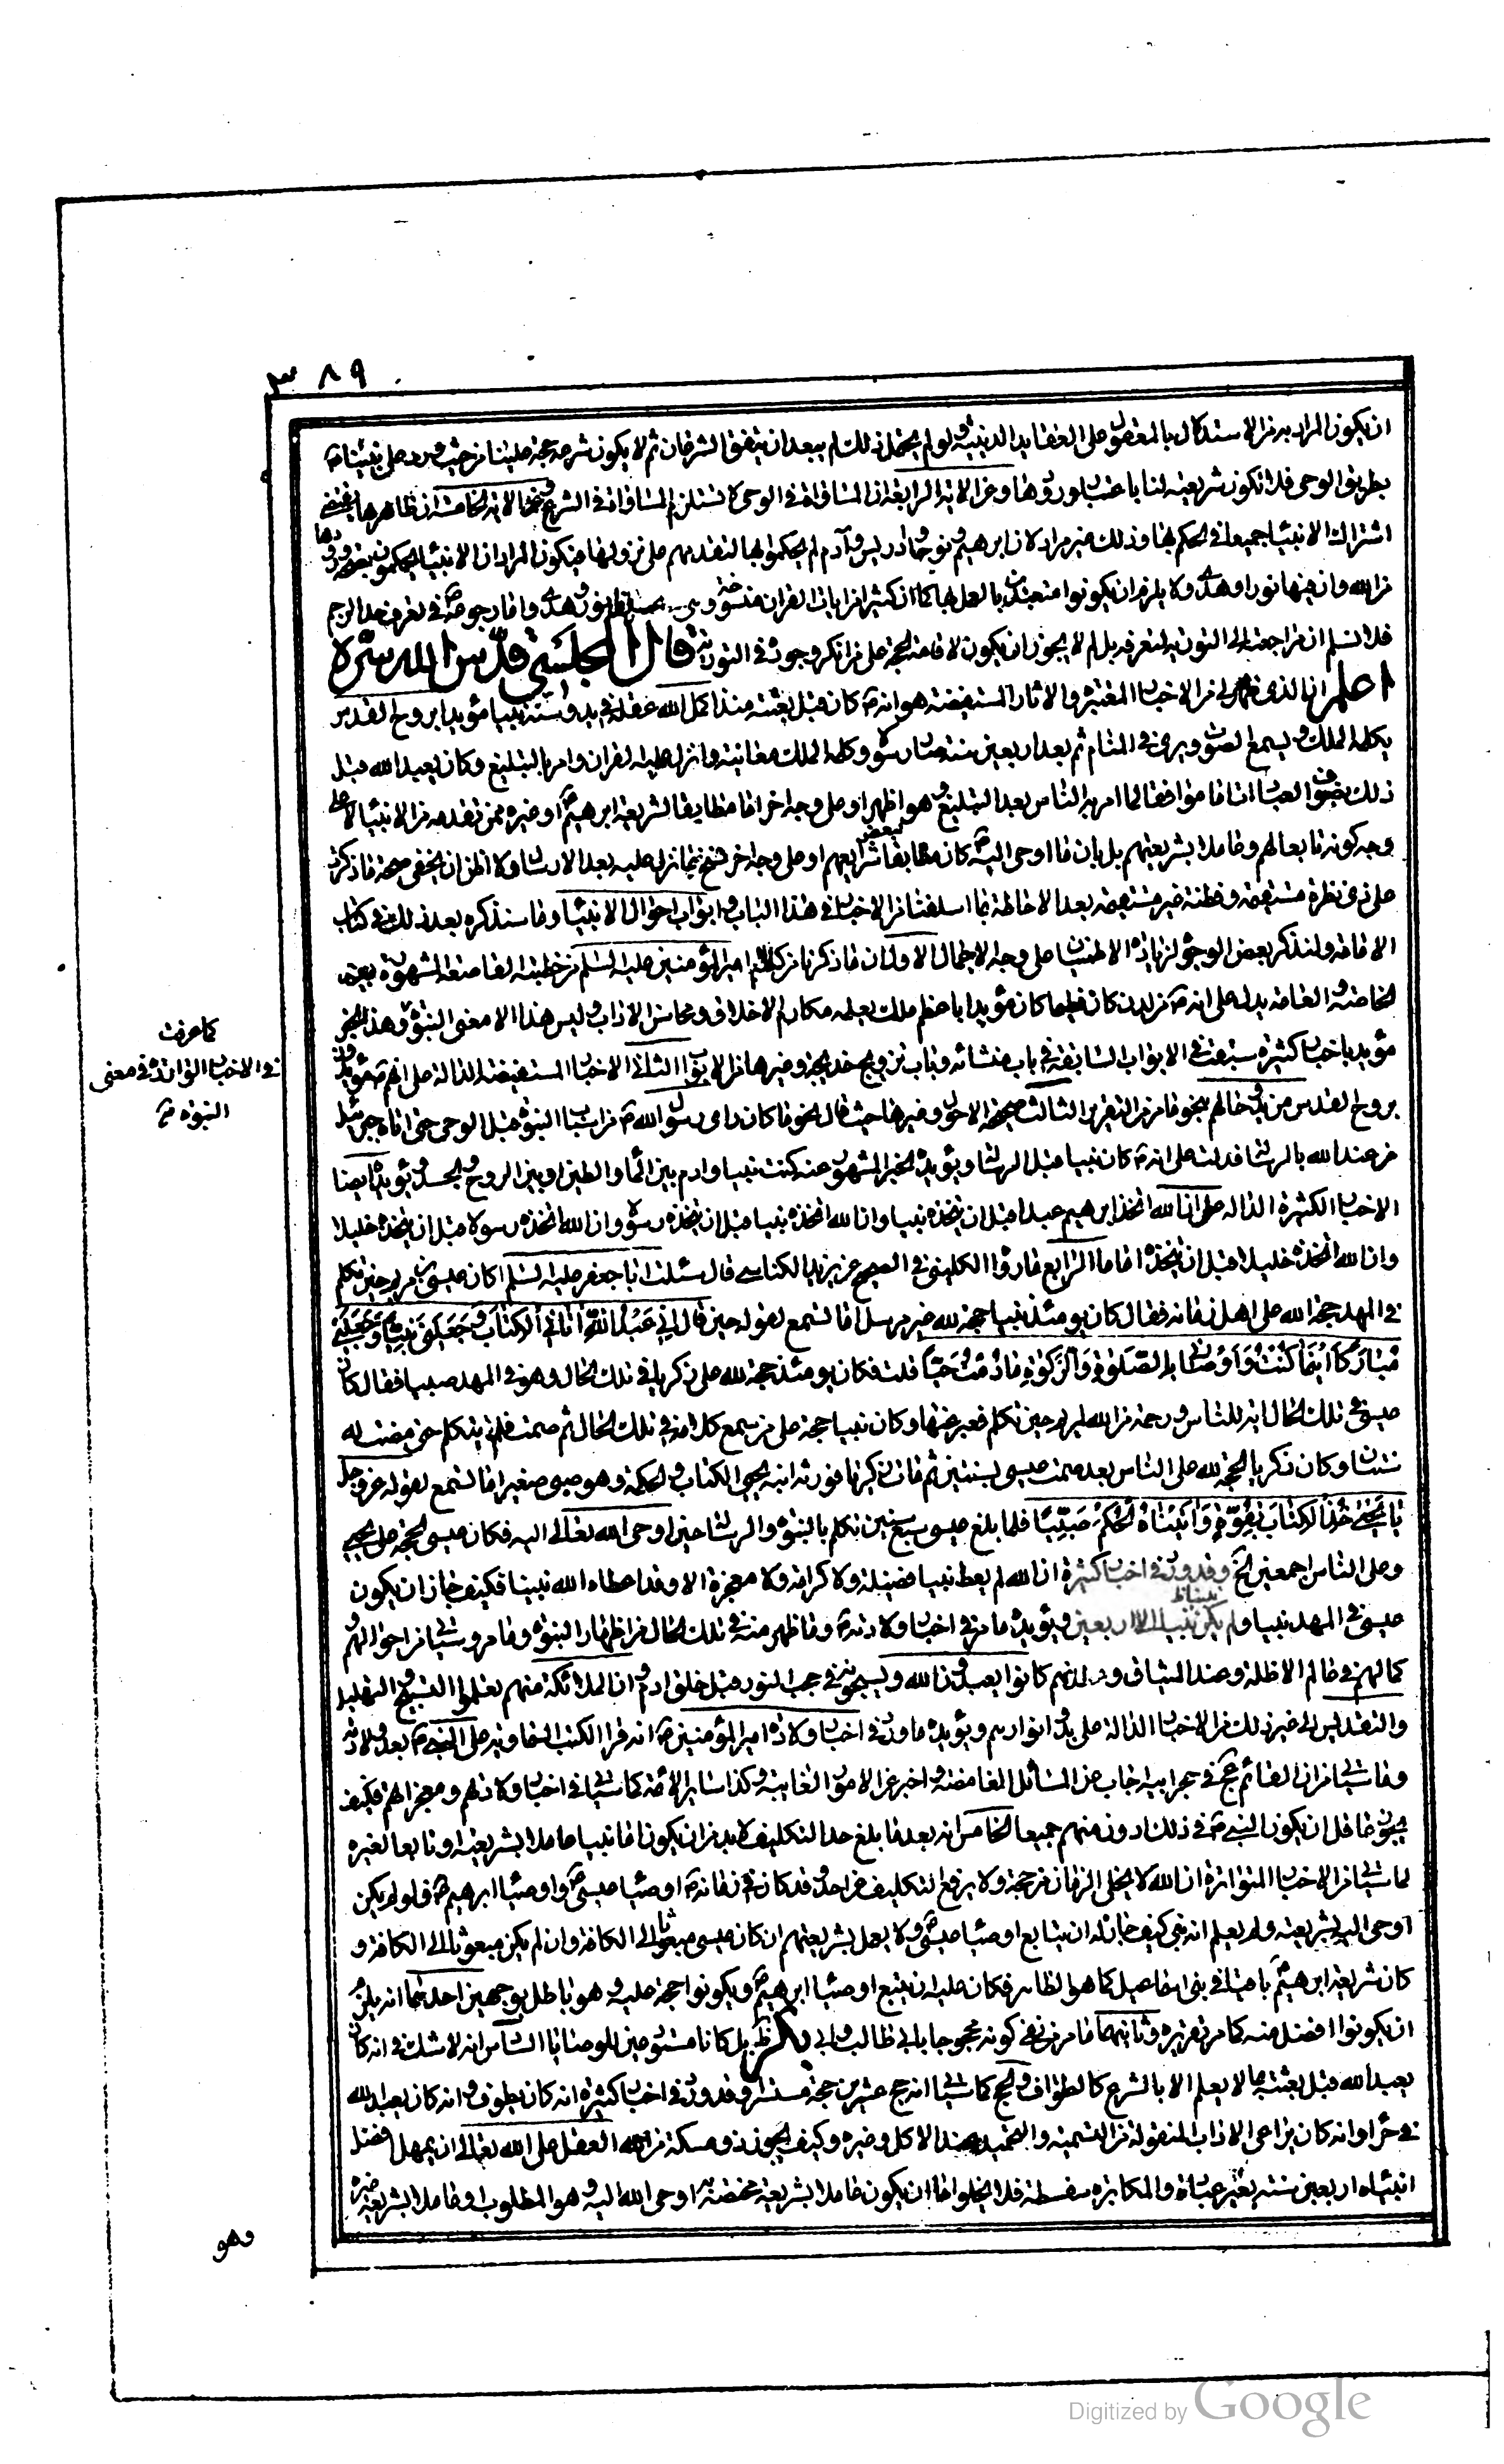 ٣٨٩
ان يكون المراد به هنا الاستدلال بالمعقول على العقايد الدينية ولو لم يحتمل ذلك لم يبعد ان يتفق الشرعان ثم لا يكون شرعه حجة علينا من حيث ورد على نبينا ص
بطريق الوحى فلا تكون شريعته لنا باعتبار ورودها وعن الاية الرابعة ان المساواة فى الوحى لا تستلزم المساواة فى الشرع وعن الاية الخامسة ان ظاهرها يقتضى
اشتراك الانبياء جميعا فى الحكم بها وذلك غير مراد لان ابرهيم ونوحا وادريس وآدم لم يحكموا بها لتقدمهم على نزولها فيكون المراد ان الانبياء يحكمون بصحة ورودها
من الله وان فيها نورا وهدى ولا يلزم ان يكونوا متعبدين بالعمل بها كما ان كثيرا من ايات القران منسوخة و نور وهدى واما رجوعه ص فى تعرف حد الرجم
فلا نسلم ان مراجعته الى التورية لتعرفه بل لم لا يجوز ان يكون لاقامة الحجة على من انكر وجوده فى التورية قال المجلسى قدّس الله سرّه
اعلم ان الذى ظهر لى من الاخبار المعتبرة والاثار المستفيضة هو انه ص كان قبل بعثته منذ اكمل الله عقله فى بدو سنه نبيا مؤيدا بروح القدس
يكلمه الملك ويسمع الصوت ويرى فى المنام ثم بعد اربعين سنة صار رسولا وكلمه الملك معاينة وانزل عليه القران وامر بالتبليغ وكان يعبد الله قبل
ذلك بصنوف العبادات اما موافقا لما امر به الناس بعد التبليغ وهو اظهر او على وجه اخر اما مطابقا لشريعة ابرهيم او غيره ممن تقدمه من الانبياء لا على
وجه كونه تابعا لهم وعاملا بشريعتهم بل بان ما اوحى اليه ص كان مطابقا لبعض شرايعهم او على وجه اخر نسخ بما نزل عليه بعد الارسال ولا اظن ان يخفى صحة ما ذكرت
على ذى فطرة مستقيمة وفطنة غير مستقيمة بعد الاحاطة بما اسلفنا من الاخبار فى هذا الباب وابواب احوال الانبياء وما سنذكره بعد ذلك فى كتاب
الامامة ولنذكر بعض الوجوه لزيادة الاطمينان على وجه الاجمال الاول ان ما ذكرنا من كلام امير المؤمنين عليه السلم من خطبته القاصعة المشهورة بين
الخاصة والعامة يدل على انه ص من لدن كان فطيما كان مؤيدا باعظم ملك يعلمه مكارم الاخلاق ومحاسن الاداب وليس هذا الا معنى النبوة وهذا الخبر
كما عرفت
فى الاخبار الواردة فى معنى
النبوة ص
مؤيد باخبار كثيرة سبقت فى الابواب السابقة فى باب منشائه وباب تزويج خديجة وغيرها من الابواب الثانى الاخبار المستفيضة الدالة على انهم ع مؤيدون
بروح القدس من بدو حالهم بنحو ما مر من التقرير الثالث صحيحة الاحول وغيرها حيث قال نحو ما كان راى رسول الله ص من اسباب النبوة قبل الوحى حتى اتاه جبرئيل
من عند الله بالرسالة فدلت على انه ص كان نبيا قبل الرسالة ويؤيده الخبر المشهور عنه كنت نبيا وادم بين الماء والطين او بين الروح والجسد ويؤيده ايضا
الاخبار الكثيرة الدالة على ان الله اتخذ ابرهيم عبدا قبل ان يتخذه نبيا وان الله اتخذه نبيا قبل ان يتخذه رسولا وان الله اتخذه رسولا قبل ان يتخذه خليلا
وان الله اتخذه خليلا قبل ان يتخذه اماما الرابع ما رواه الكلينى فى الصحيح عن يزيد الكناسى قال سئلت ابا جعفر عليه السلم اكان عيسى بن مريم حين تكلم
فى المهد حجة الله على اهل زمانه فقال كان يومئذ نبيا حجة لله غير مرسل اما تسمع لقوله حين قال انى عبد الله اتانى الكتاب وجعلنى نبيا وجعلنى
مباركا اينما كنت واوصانى بالصلوة والزكوة ما دمت حيا قلت فكان يومئذ حجة لله على زكريا فى تلك الحال وهو فى المهد صبيا فقال كان
عيسى فى تلك الحال اية للناس ورحمة من الله لمريم حين تكلم فعبر عنها وكان نبيا حجة على من سمع كلامه فى تلك الحال ثم صمت فلم يتكلم حتى مضت له
سنتان وكان زكريا الحجة لله على الناس بعد صمت عيسى بسنتين ثم مات زكريا فورثه ابنه يحيى الكتاب والحكمة وهو صبى صغير اما تسمع لقوله عز وجل
يا يحيى خذ الكتاب بقوة واتيناه الحكم صبيا فلما بلغ عيسى سبع سنين تكلم بالنبوة والرسالة حين اوحى الله تعالى اليه فكان عيسى الحجة على يحيى
وعلى الناس اجمعين الخ وقد ورد فى اخبار كثيرة ان الله لم يعط نبيا فضيلة ولا كرامة ولا معجزة الا وقد اعطاه الله نبينا فكيف جاز ان يكون
عيسى فى المهد نبيا ولم يكن نبينا الى الاربعين نبيا ويؤيده ما مر فى اخبار ولادته ص وما ظهر منه فى تلك الحال من اظهار النبوة وما مر وسياتى من احوالهم و
كمالهم فى عالم الاظلة وعند الميثاق و انهم كانوا يعبدون الله ويسبحونه فى حجب النور قبل خلق ادم وان الملائكة منهم تعلموا التسبيح والتهليل
والتقديس الى غير ذلك من الاخبار الدالة على بدو انوارهم ويؤيده ما ورد فى اخبار ولادة امير المؤمنين ص انه قرا الكتب السماوية على النبى ص بعد ولادته
وما سياتى من ان القائم عج فى حجر ابيه اجاب عن المسائل الغامضة واخبر عن الامور الغائبة وكذا سائر الائمة كما سياتى فى اخبار ولادتهم ومعجزاتهم فكيف
يجوز عاقل ان يكون النبى ص فى ذلك ادون منهم جميعا الخامس انه بعد ما بلغ حد التكليف لا بد من ان يكون اما نبيا عاملا بشريعته او تابعا لغيره
لما سياتى من الاخبار المتواترة ان الله لا يخلى الزمان من حجة ولا يرفع التكليف عن احد وقد كان فى زمانه ص اوصيا عيسى ع واوصيا ابرهيم ع فلو لم يكن
اوحى اليه بشريعة ولم يعلم انه نبى كيف جاز له ان يتابع اوصيا عيسى ع ولا يعمل بشريعتهم ان كان عيسى مبعوثا الى الكافة وان لم يكن مبعوثا الى الكافة و
كان شريعة ابرهيم باقية فى بنى اسماعيل كما هو الظاهر فكان عليه ان يتبع اوصيا ابرهيم ويكونوا حجة عليه وهو باطل بوجهين احدهما انه يلزم
ان يكونوا افضل منه كما مر تقريره وثانيهما ما مر من نفى كونه محجوجا بابى طالب وابى بل كانا مستودعين للوصايا السادس انه لا شك فى انه كان
يعبد الله قبل بعثته بما لا يعلم الا بالشرع كالطواف والحج كما سياتى انه حج عشرين حجة مستسرا وقد ورد فى اخبار كثيرة انه كان يطوف وانه كان يعبد الله
فى حراء وانه كان يراعى الاداب المنقولة من التسمية والتحميد عند الاكل وغيره وكيف يجوز ذو مسكة من العقل على الله تعالى ان يهمل افضل
انبيائه اربعين سنة بغير عبادة والمكابرة سفسطة فلا يخلوا اما ان يكون عاملا بشريعة مختصة به اوحى الله اليه وهو المطلوب او عاملا بشريعة غيره
وهو
Digitized by Google